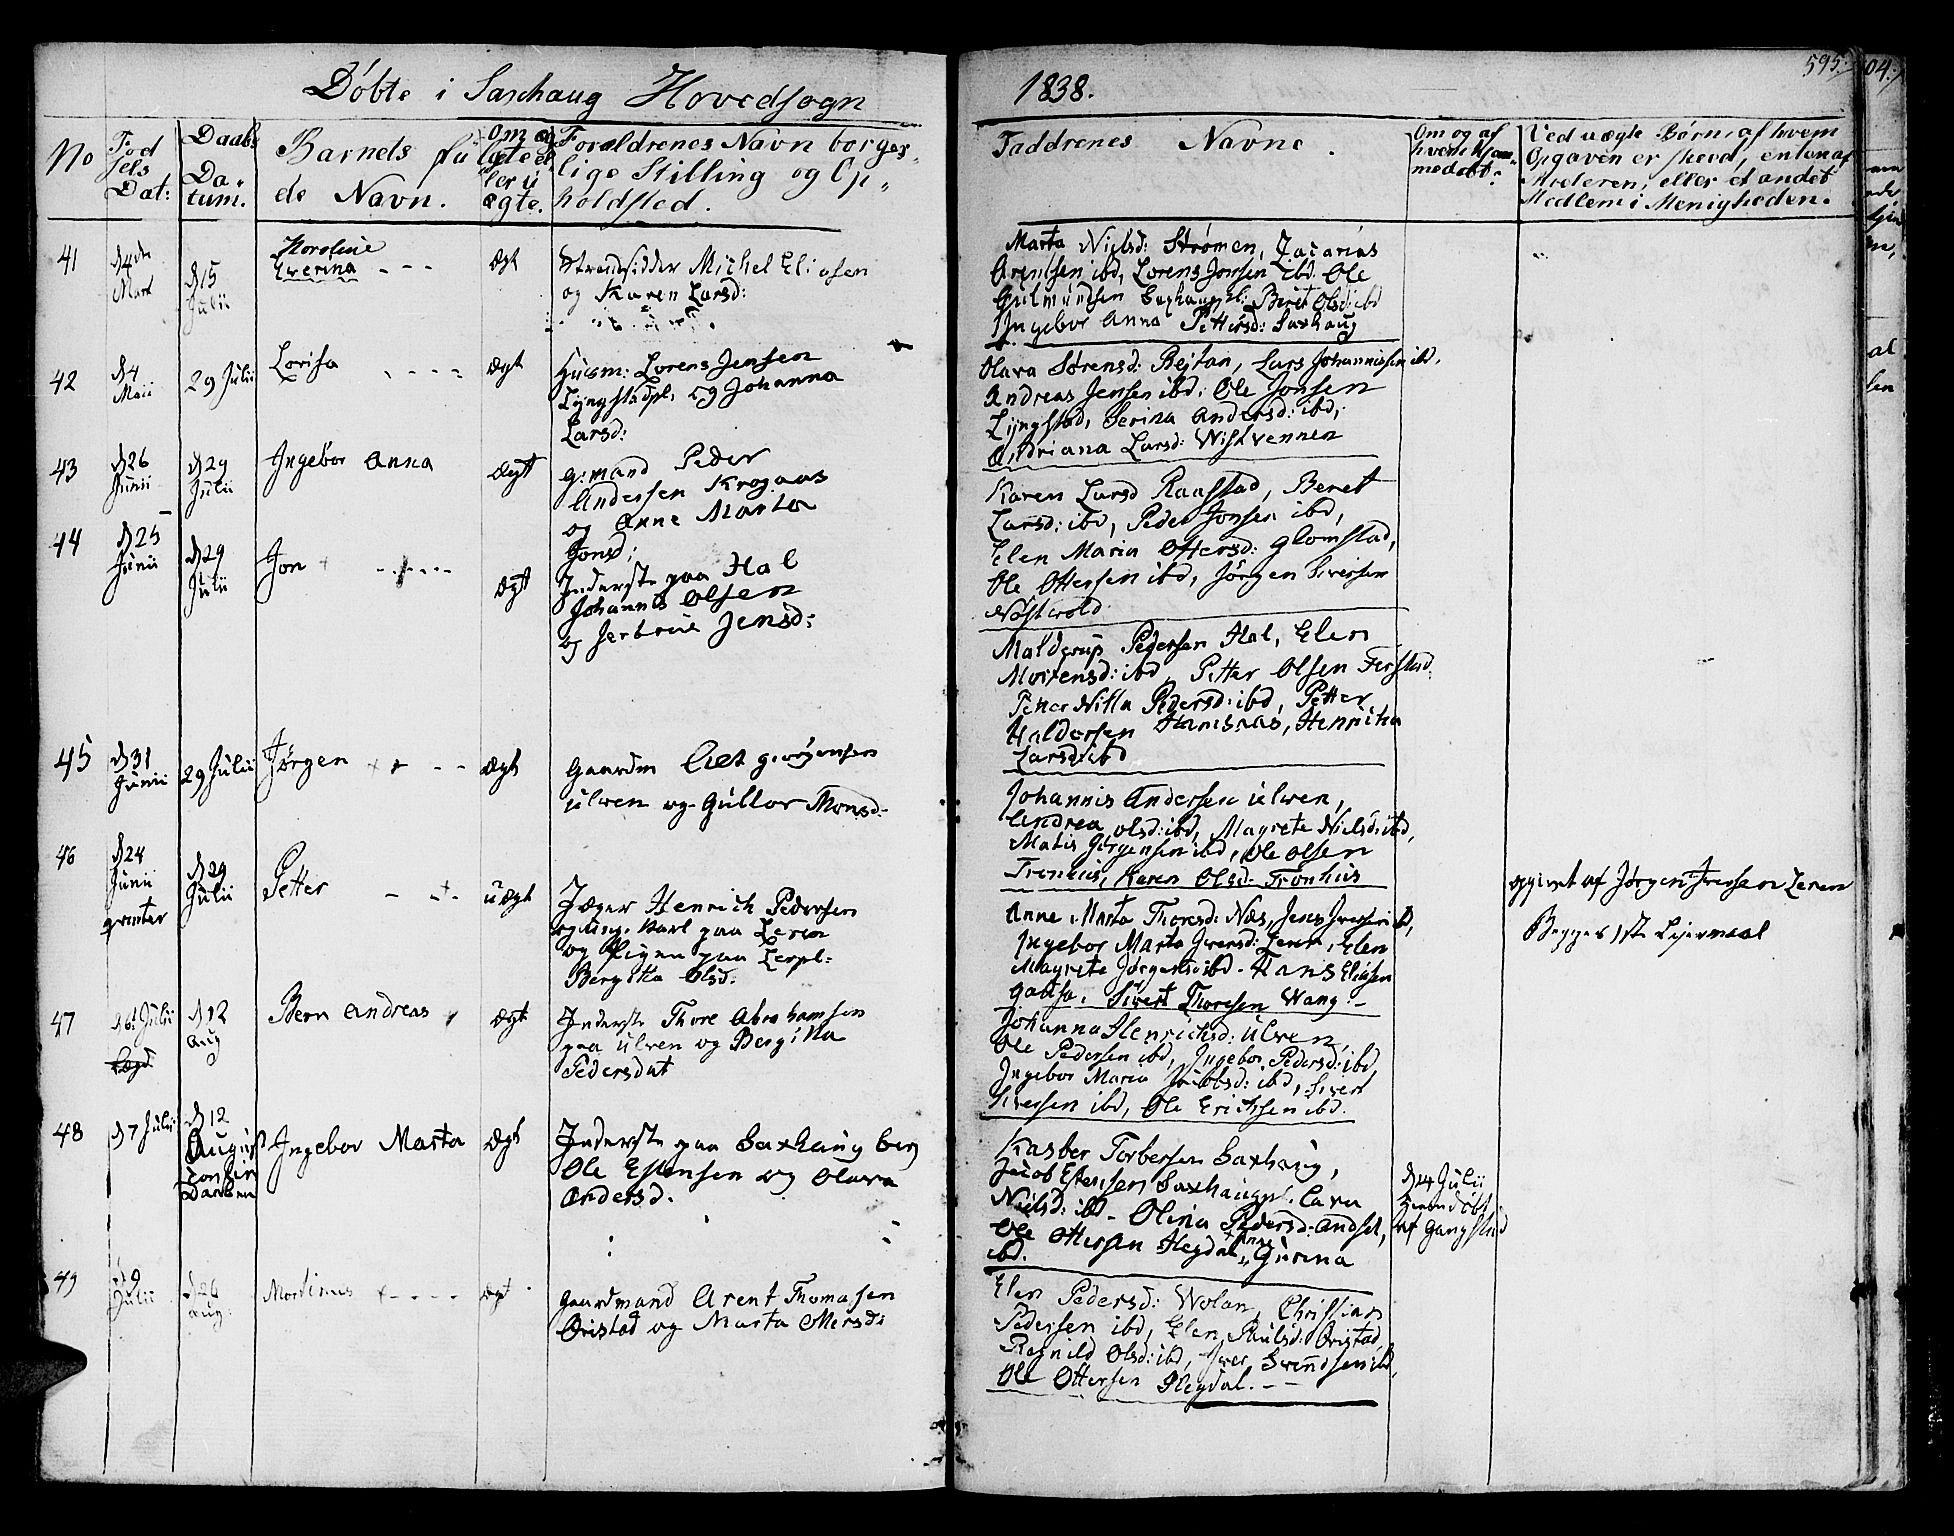 Døbte i Saxhaug Hovedsogn
1838.
595.
No
Fød
sels
Dat:
Daabs
Da-
tum.
Barnets ful
de Navn.
Om æg
te el
ler u
ægte.
Forældrenes Navn borger-
lige Stilling og Op-
holdsted.
Faddrenes Navne.
Om og af
hvem hjem-
medøbt.
Ved uægte Børn, af hvem
Opgaven er skeed, enten af
Moderen, eller et andet
Medlem i Menigheden.
41
d 4de
Mart
d 15
Julii
Karoline
Everina
Ægt
Strandsidder Michel Eliasen
og Karen Larsd:
Marta Nielsd: Strømen, Zacarias
Arentsen ibd, Lorens Jonsen ibd. Ole
Gulmundsen Saxhaugpl: Beret Olsd: ibd
Ingebor Anna Pettersd: Saxhaug
42
d 4
Maii
29 Julii
Lovisa
Ægt
Huusm: Lorens Jensen
Lyngstadpl. og Johanna
Larsd:
Olava Sørensd: Rejtan, Lars Johannissen ibd.
Andreas Jensen ibd: Ole Jonsen
Lyngstad, Serina Andersd: ibd,
Adriana Larsd: Wistvennen
43
d 26
Junii
d 29
Julii
Ingebor Anna
Ægt
G:mand Peder
Andersen Krogaas
og Anne Marta
Jonsd:
Karen Larsd Raastad, Beret
Larsd: ibd, Peder Jonsen ibd,
Elen Maria Ottersd: Glomstad,
Ole Ottersen ibd, Jørgen Siversen
Nøstvold
44
d 25
Junii
d 29
Julii
Jon
Ægt
Inderste paa Hal
Johannes Olsen
og Serbrue Jensd:
Maldgrup Pedersen Hal, Elen
Mortensd: ibd, Petter Olsen Ferstad.
Petter Nilla Pedersd: ibd, Petter
Haldorsen Hamsaas, Henrika
Larsd ibd
45
d 31
Junii
29 Julii
Jørgen
Ægt
Gaardm Elet Giørgensen
Ulven og Gullor Monsd.
Johannis Andersen Ulven,
Andrea Olsd: ibd, Magrete Nielsd: ibd,
Matis Gørgensen ibd, Ole Olsen
Tronhus, Karen Olsd: Tronhus
46
d 24
Junii
d 29
Julii
Petter
uægt
Jæger Henrich Pedersen
og Ung. Karl paa Leren
og Pigen paa Lerpl:
Bergitta Olsd:
Anne Marta Thoresd: Næs, Jens Iversen ibd,
Ingebor Marta Iversd: Leren, Elen
Magrete Jørgensd ibd. Hans Eliasen
Sivert Thoresen Wang.
opgivet af Jørgen Iversen Leren
Begges 1ste Lejermaal
47
d 6t Julii
d 12
Aug
Bern Andreas
Ægt
Inderste Thore Abrahamsen
paa Ulven og Bergitta
Pedersdat
Johanna Henrichsd: Ulven,
Ole Pedersen ibd, Ingebor Pedersd: ibd,
Ingebor Maria Jacobsd: ibd, Sivert
Siversen ibd, Ole Erichsen ibd.
48
d 7 Julii
d 12
August
Ingebor Marta
Ægt
Inderste paa Saxhaug
Ole Estensen og Olava
Andersd.
Kasber Torbersen Saxhaug,
Jacob Estensen Saxhaugpl. Lava
Nielsd: ibd - Olina Pedersd: Andset,
Ole Ottersen Hegdal, Anne Gurina
ibd.
d 14 Julii
af Gangstad
49
d 9
Julii
d 26
Aug:
Mortinus
Ægt
Gaardmand Arent Thomasen
Oristad og Marta Olersd:
Elen Pedersd: Wolan, Christian
Pedersen ibd, Elen Paulsd: Oristad,
Regnild Olsd: ibd, Iver Svendsen ibd,
Ole Ottersen Hegdal.